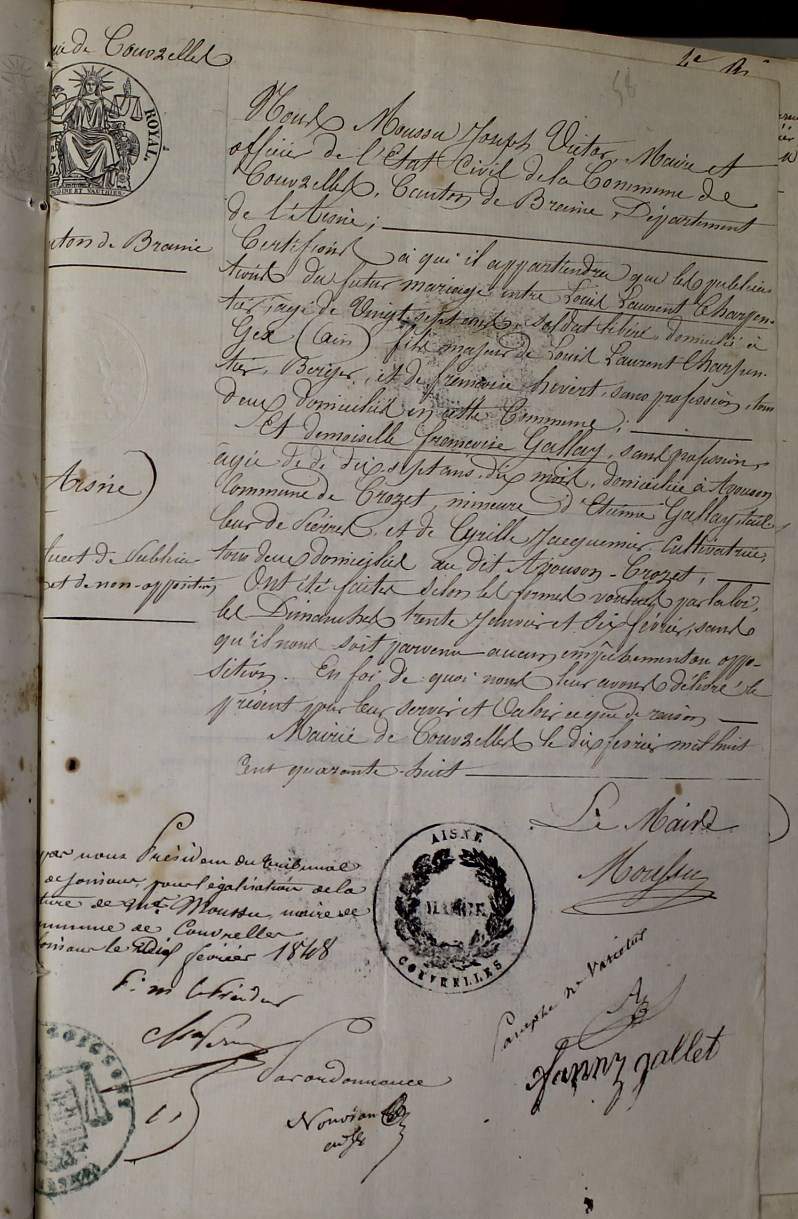 de Couvrelles
ROYAL
58
Nous Moussu Joseph Victor, Maire et
officier de l'Etat Civil de la Commune de
Couvrelles, Canton de Braine, Département
de l'Aisne;
Canton de Braine
Certifions à qui il appartiendra que les publica-
tions du futur mariage entre Louis Laurent Charpen-
tier, agé de Vingt sept ans, soldat libéré, domicilié à
Gex (Ain) fils majeur de Louis Laurent Charpen-
tier, Berger, et de hivert, sans profession, tous
deux domiciliés en cette Commune;
Et demoiselle françoise Gallay, sans profession,
agée de de dix sept ans dix mois, domiciliée à Avouson
Commune de Crozet, mineure d'Etienne Gallay, tail-
leur de Pierres, et de Cyrille Jacquemier, Cultivatrice,
tous deux domiciliés au dit Avouson-Crozet,
Aisne)
de Publica
et de non-opposition
Ont été faites selon les formes voulues par la loi,
les Dimanches trente Janvier et Six février, sans
qu'il nous soit parvenu aucun empêchement ou oppo-
sition. En foi de quoi nous leur avons délivré le
présent pour leur servir et valoir ce que de raison
Mairie de Couvrelles le dix février mil huit
Cent quarante-huit
Le Maire
Moussu
par nous Président du tribunal
de soissons, pour légalisation de la
de Mr. Moussu, maire de
commune de Couvrelles
soissons le février 1848
AISNE
MAIRIE
COUVRELLES
Par ordonnance
SOISSONS